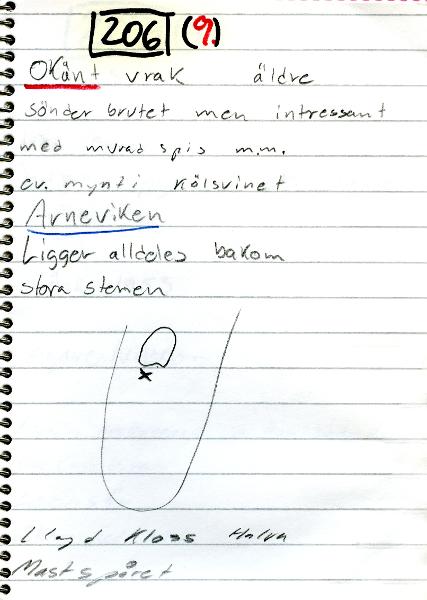 206 (9.)
Okänt vrak äldre
Sönder brutet men intressant
med murad spis m.m.
ev. mynt i kölsvinet
Arneviken
Ligger alldeles bakom
stora stenen
x
Lloyd Kloss Halva
Mastspåret